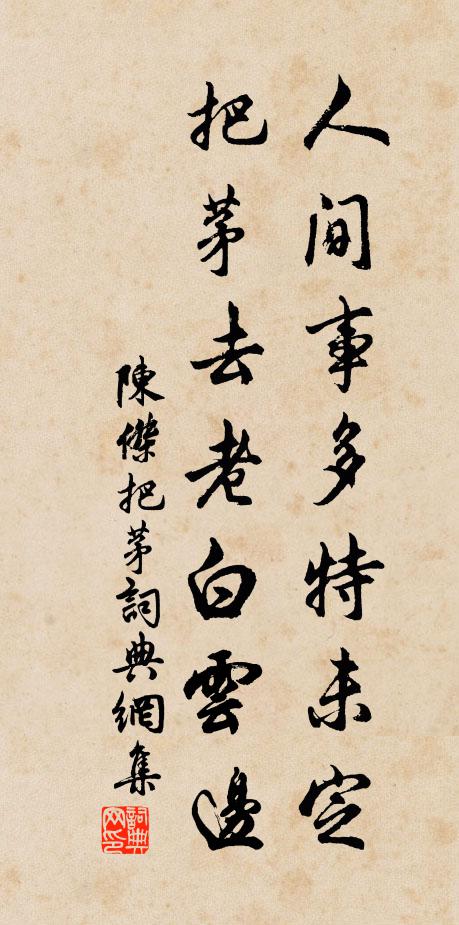 人間事多特未定
把茅去老白雲邊
陳傑把茅詞典網集
詞典网印